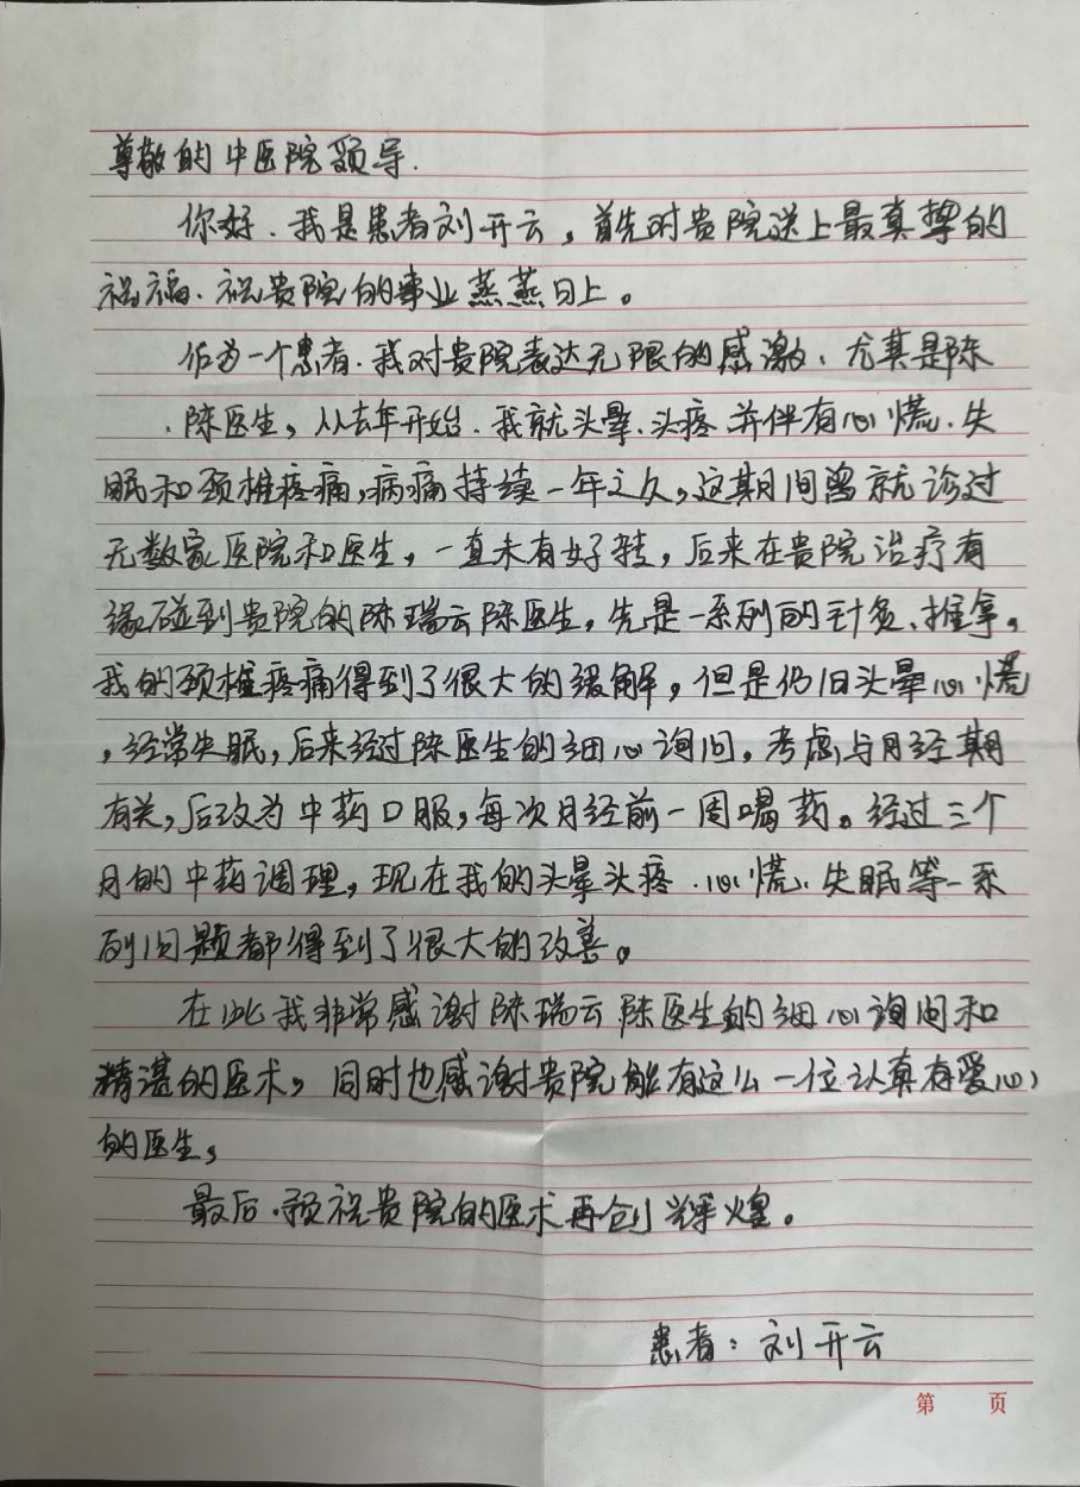 尊敬的中医院领导.
你好.我是患者刘开云,首先对贵院送上最真挚的
祝福、祝贵院的事业蒸蒸日上。
作为一个患者.我对贵院表达无限的感激、尤其是陈
.陈医生,从去年开始.我就头晕、头疼、并伴有心慌、失
眠和颈椎疼痛,病痛持续一年之久,这期间曾就诊过
无数家医院和医生,一直未有好转,后来在贵院治疗有
缘碰到贵院的陈瑞云陈医生,先是一系列的针灸、推拿,
我的颈椎疼痛得到了很大的缓解,但是仍旧头晕心慌
,经常失眠,后来经过陈医生的细心询问,考虑与月经期
有关,后改为中药口服,每次月经前一周喝药。经过三个
月的中药调理,现在我的头晕头疼.心慌、失眠等一系
列问题都得到了很大的改善。
在此我非常感谢陈瑞云陈医生的细心询问和
精湛的医术,同时也感谢贵院能有这么一位认真有爱心
的医生,
最后.预祝贵院的医术再创辉煌。
患者:刘开云
第 页